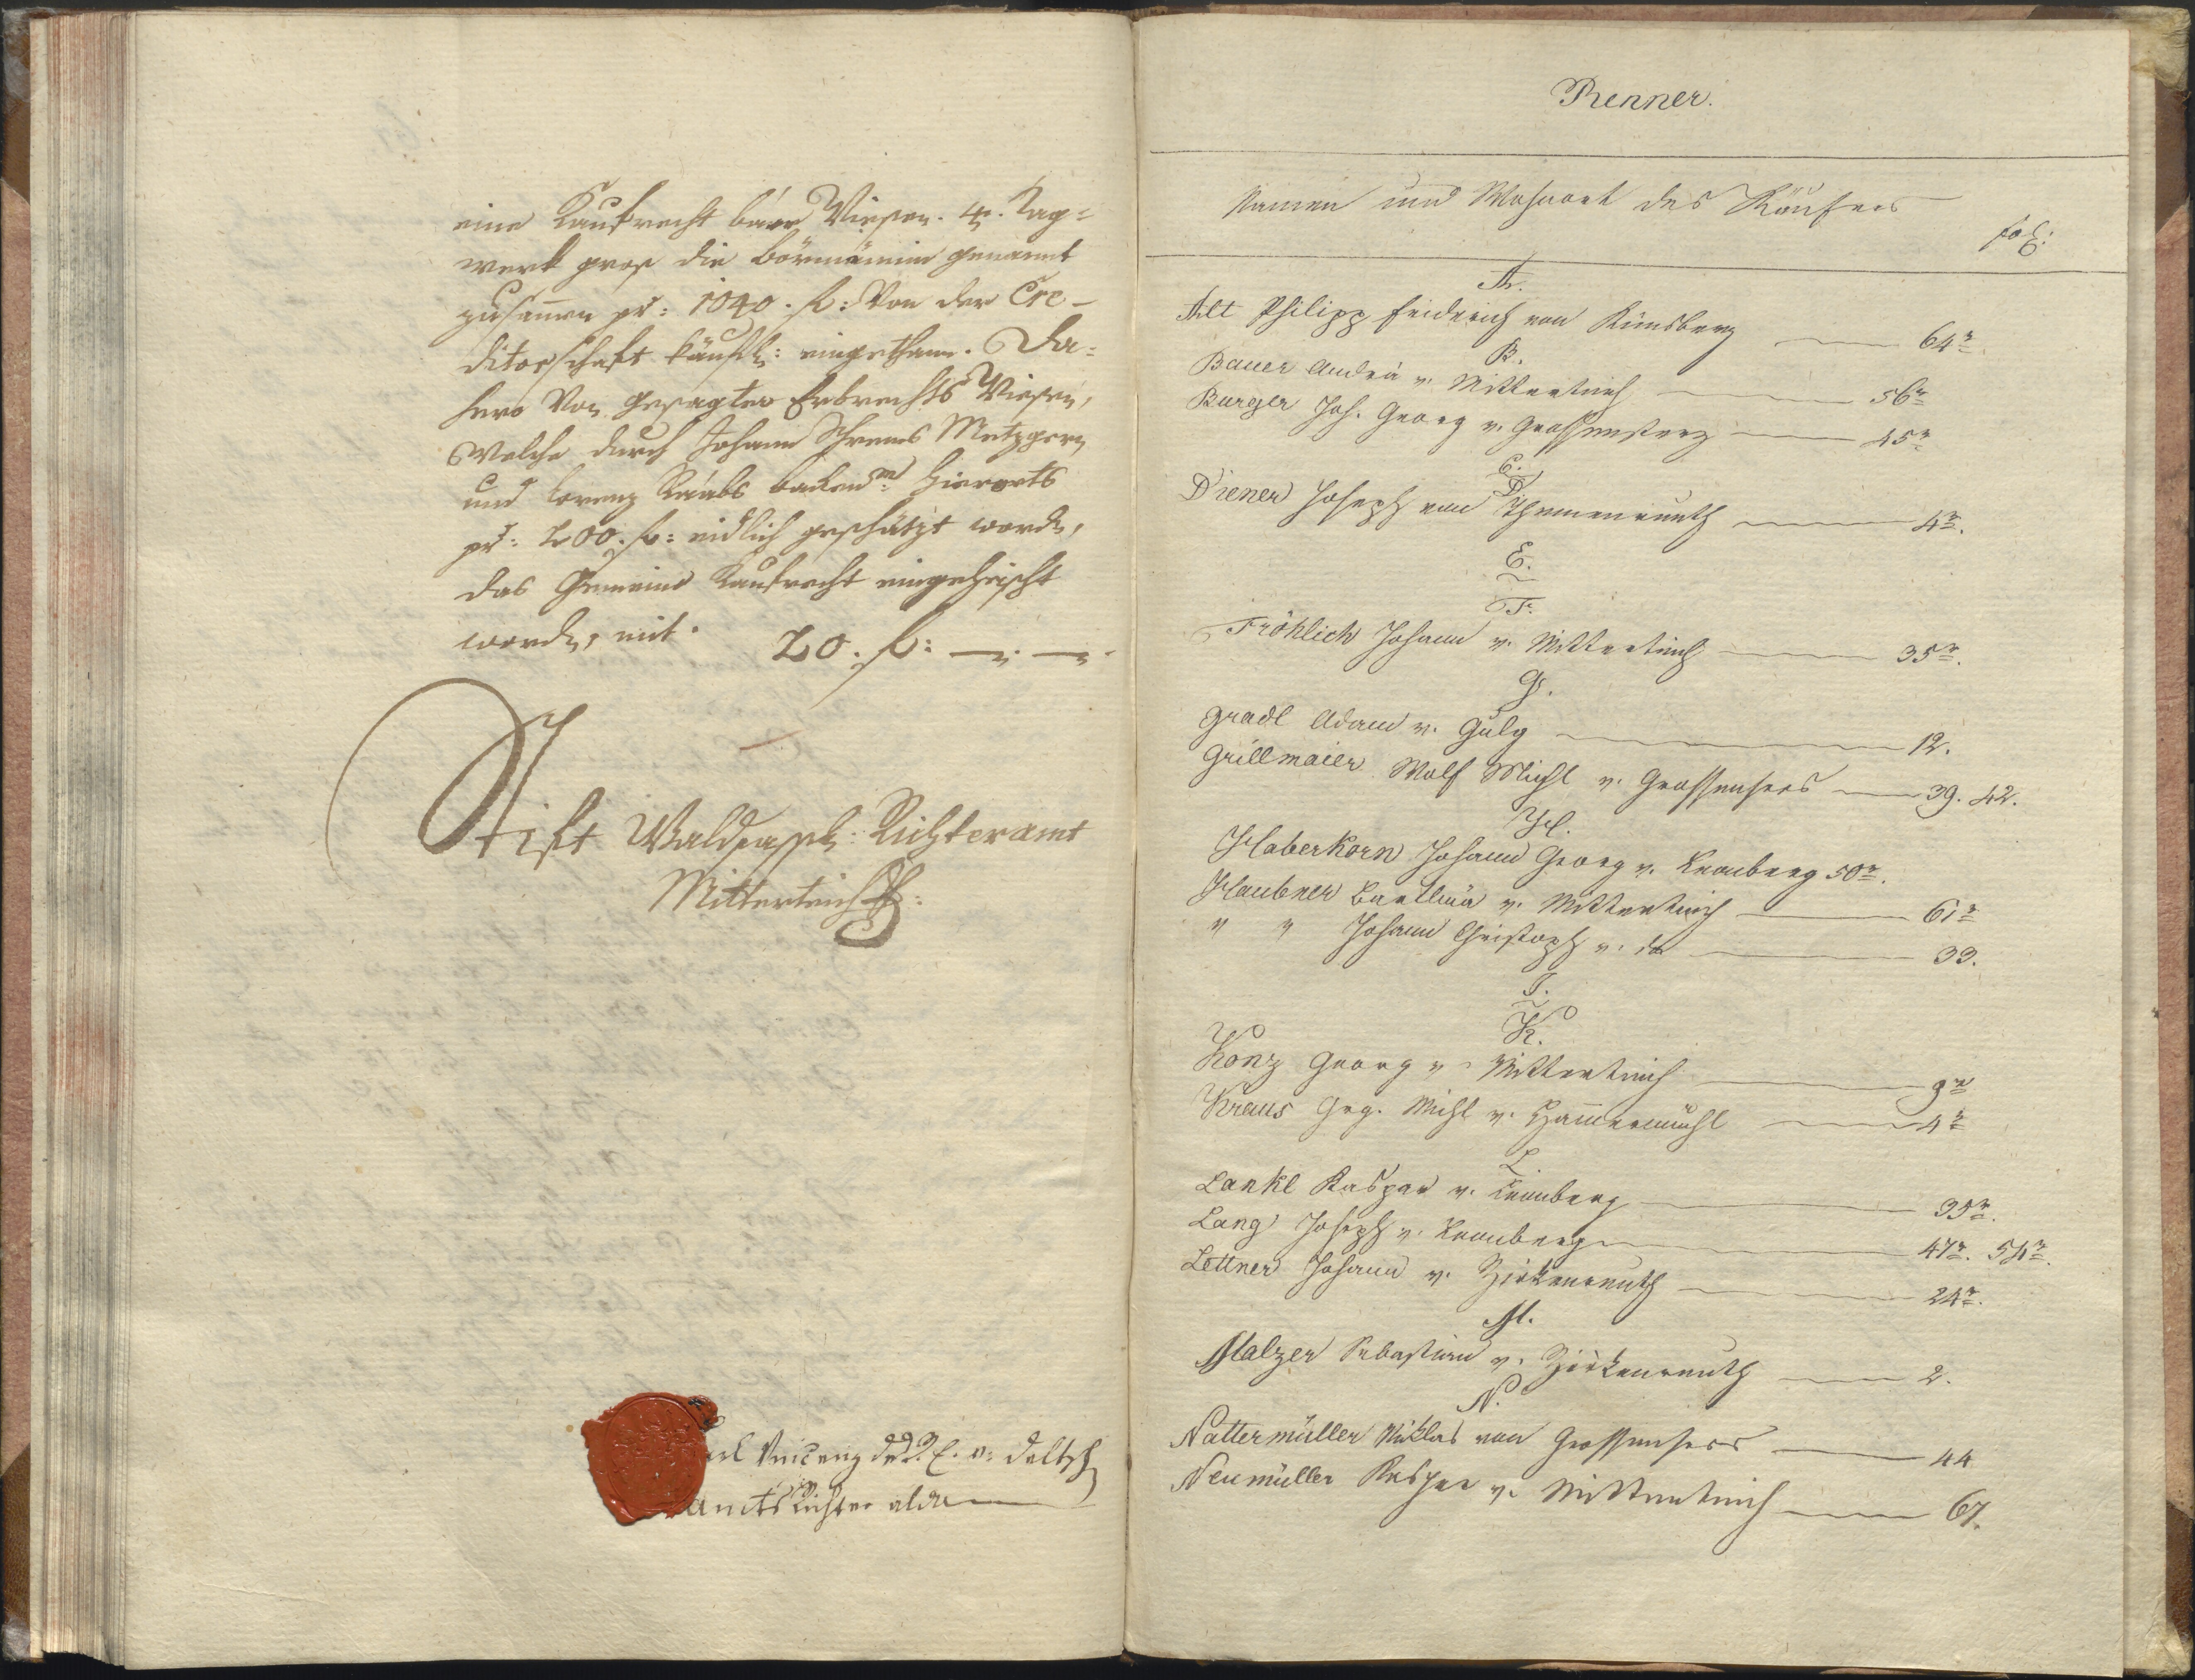 eine Kaufrecht bare Wiesen. 4. Tag=
werk gros die Börmännin genannt
zusamen pr: 1040. fl: Von der Cre-
ditorschaft käufl: eingethann. Da=
hero Von gesagter Erbrechts Wiesen,
Welche durch Johann Schrems Metzgern
und Lorenz Raabs hierorts
pr: 200. fl: eidlich geschätzt word,
das Gemeine Kaufrecht eingeheischt
word, mit. 20. fl: — —
Stift Waldsassl: Richteramt
Mitterteich
Vincenz v: Deltsch
Amts Richter alda
Renner.
Namen und Wohnort des Käufers
fol:
A.
Alt Philipp Friderich von Künsberg — 64r
B.
Bauer Andrä v. Mitterteich — 56r
Burger Joh. Georg v. Grossensterz — 45r
C.
D.
Diener Joseph von Themenreuth — 4r.
E.
F.
Fröhlich Johann v. Mitterteich — 35r.
G.
Gradl Adam v. Gulg — 12.
Grillmaier Wolf Michl v. Grossensees — 39. 42.
H.
Haberkorn Johann Georg v. Leonberg 50r.
Haubner Bartlmä v. Mitterteich — 61r
" " Johann Christoph v. do — 33.
I.
K.
Konz Georg v. Mitterteich — 9r
Kraus Grg. Michl v. Hammermühl — 4r
L.
Lankl Kaspar v. Leonberg — 35r.
Lang Joseph v. Leonberg — 47r. 54r.
Lettner Johann v. Zirkenreuth — 24r.
M.
Malzer Sebastian v. Zirkenreuth — 2.
N.
Nattermüller Niklas von Grossensees — 44
Neumüller Kaspar v. Mitterteich — 67.